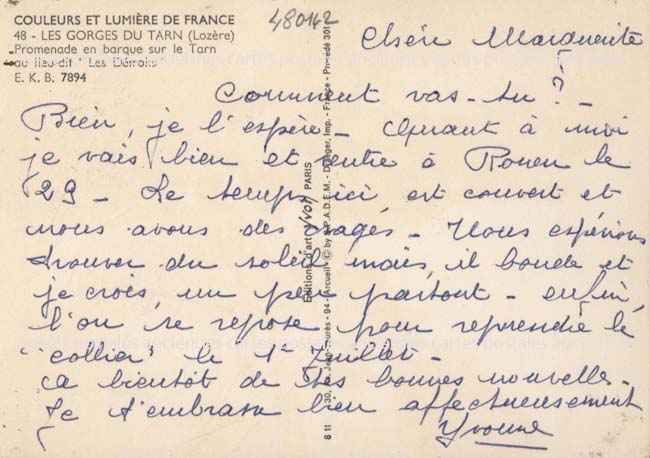 COULEURS ET LUMIÈRE DE FRANCE
48 - LES GORGES DU TARN (Lozère)
Promenade en barque sur le Tarn
au lieu-dit "Les Détroits"
E. K. B. 7894
480142
Chère Marguerite
Comment vas-tu ? -
Bien, je l'espère - Quant à moi
je vais bien et rentre à Rouen le
29 - Le temps ici, est couvert et
nous avons des orages - Nous espérions
trouver du soleil mais, il boude et
je crois, un peu partout - enfin,
l'on se repose pour reprendre le
"collier" le 1er Juillet -
à bientôt de tes bonnes nouvelles -
Je t'embrasse bien affectueusement
Yvonne
Editions d'art YVON PARIS
- 94 - Arcueil - © by S.P.A.D.E.M. - Draeger, Imp. - France - Procédé 301
8 11
cartes postales anciennes cartes postales anciennes